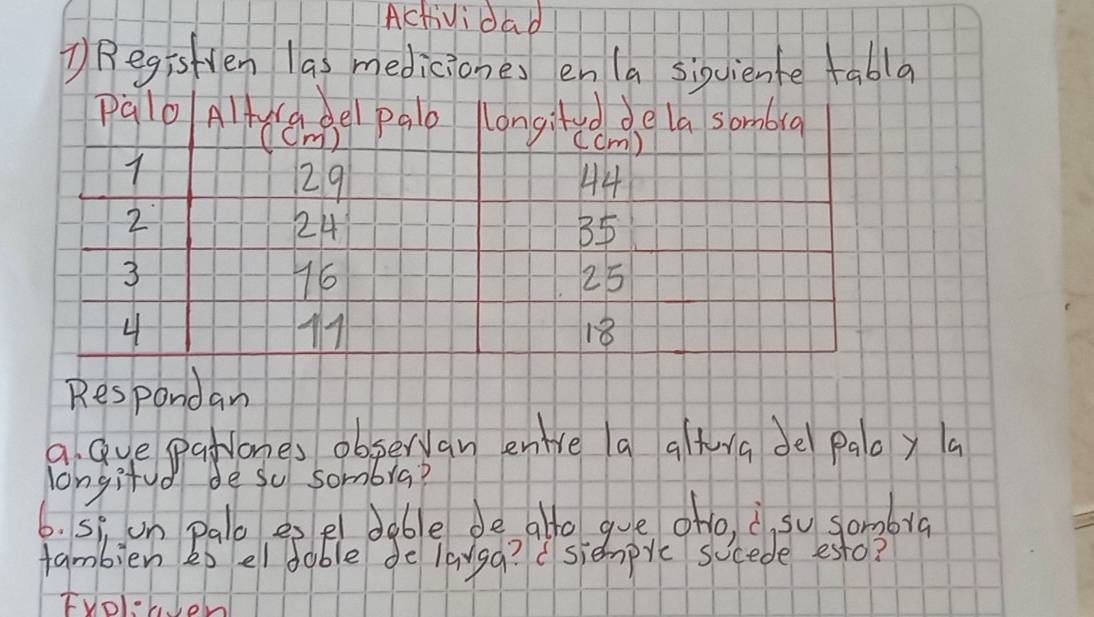 Actividad
1) Registren las mediciones en la siguiente tabla
Palo Altura del palo (cm) Longitud de la sombra (cm)
1 29 44
2 24 35
3 16 25
4 11 18
Respondan
a. Que patrones observan entre la altura del palo y la
longitud de su sombra?
b. Si un palo es el doble de alto que otro, ¿su sombra
tambien es el doble de larga? ¿siempre sucede esto?
Expliquen